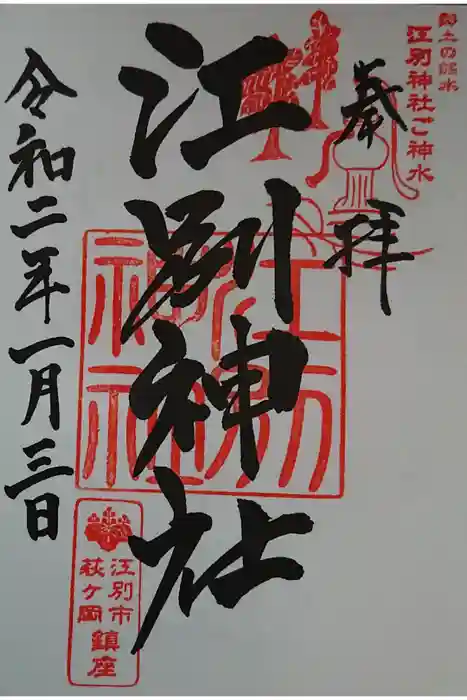 郷土の銘水
江別神社ご神水
奉拝
江別神社
江別神社
令和二年一月三日
江別市
萩ヶ岡
鎮座